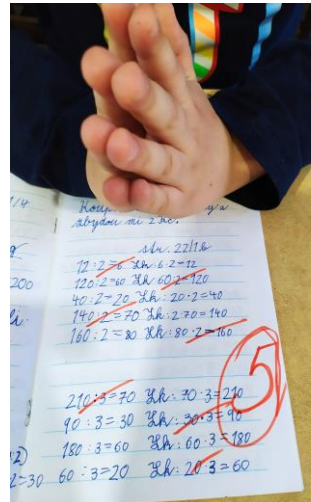 1/4
Koup
y a
zbydou mi 2 Kč.
str. 22/16
12:2=6 Zk: 6·2=12
120:2=60 Zk: 60·2=120
200
40:2=20 Zk: 20·2=40
140:2=70 Zk: 2·70=140
160:2=80 Zk: 80·2=160
5
210:3=70 Zk: 70·3=210
90:3=30 Zk: 30·3=90
180:3=60 Zk: 60·3=180
2)
2=30 60:3=20 Zk: 20·3=60